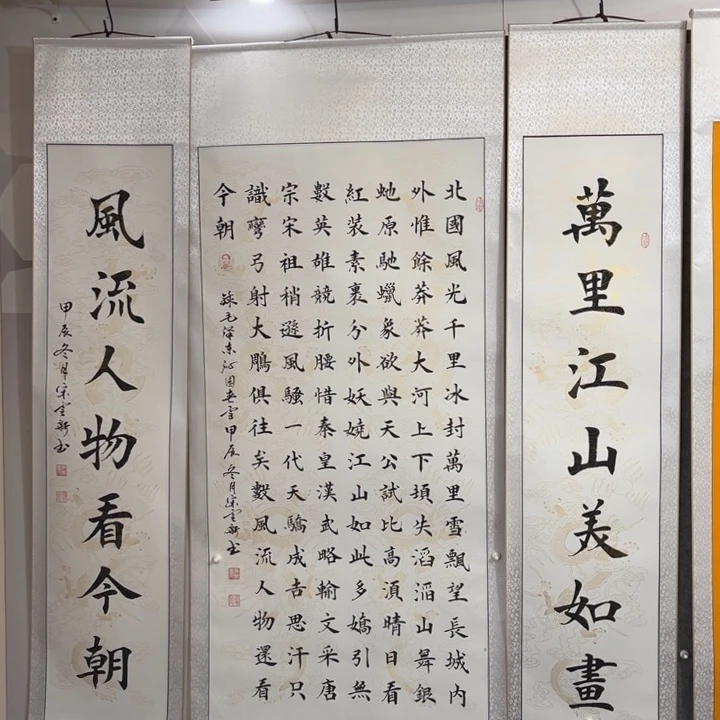 萬里江山美如畫
北國風光千里冰封萬里雪飄望長城内
外惟餘莽莽大河上下頓失滔滔山舞銀
虵原馳蠟象欲與天公試比高須晴日看
紅裝素裹分外妖嬈江山如此多嬌引無
數英雄競折腰惜秦皇漢武略輸文采唐
宗宋祖稍遜風騷一代天驕成吉思汗只
識彎弓射大鵰俱往矣數風流人物還看
今朝
錄毛澤东沁园春雪甲辰冬月宋雲新书
風流人物看今朝
甲辰冬月宋雲新书